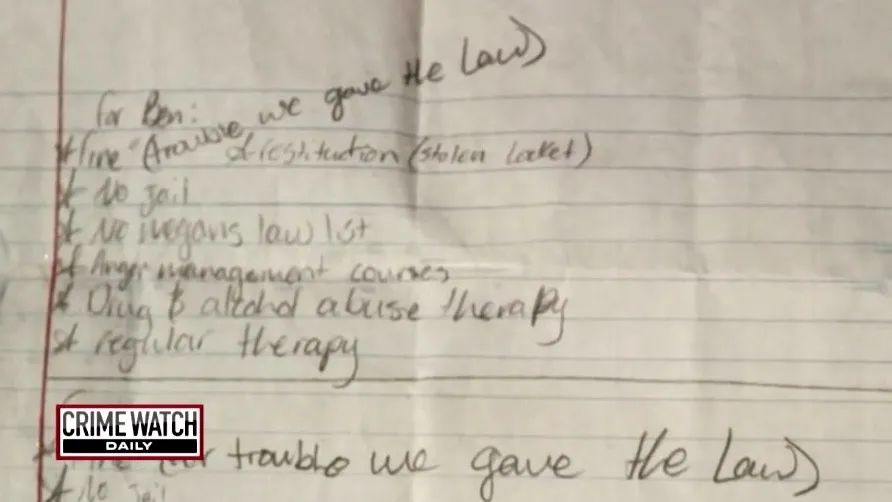 for Ben:
* fine (trouble we gave the Law)
& restitution (stolen locket)
* No jail
* No megans law lst
* Anger management courses
* Drug & alcohol abuse therapy
* regular therapy
trouble we gave the Law)
* No jail
CRIME WATCH
DAILY